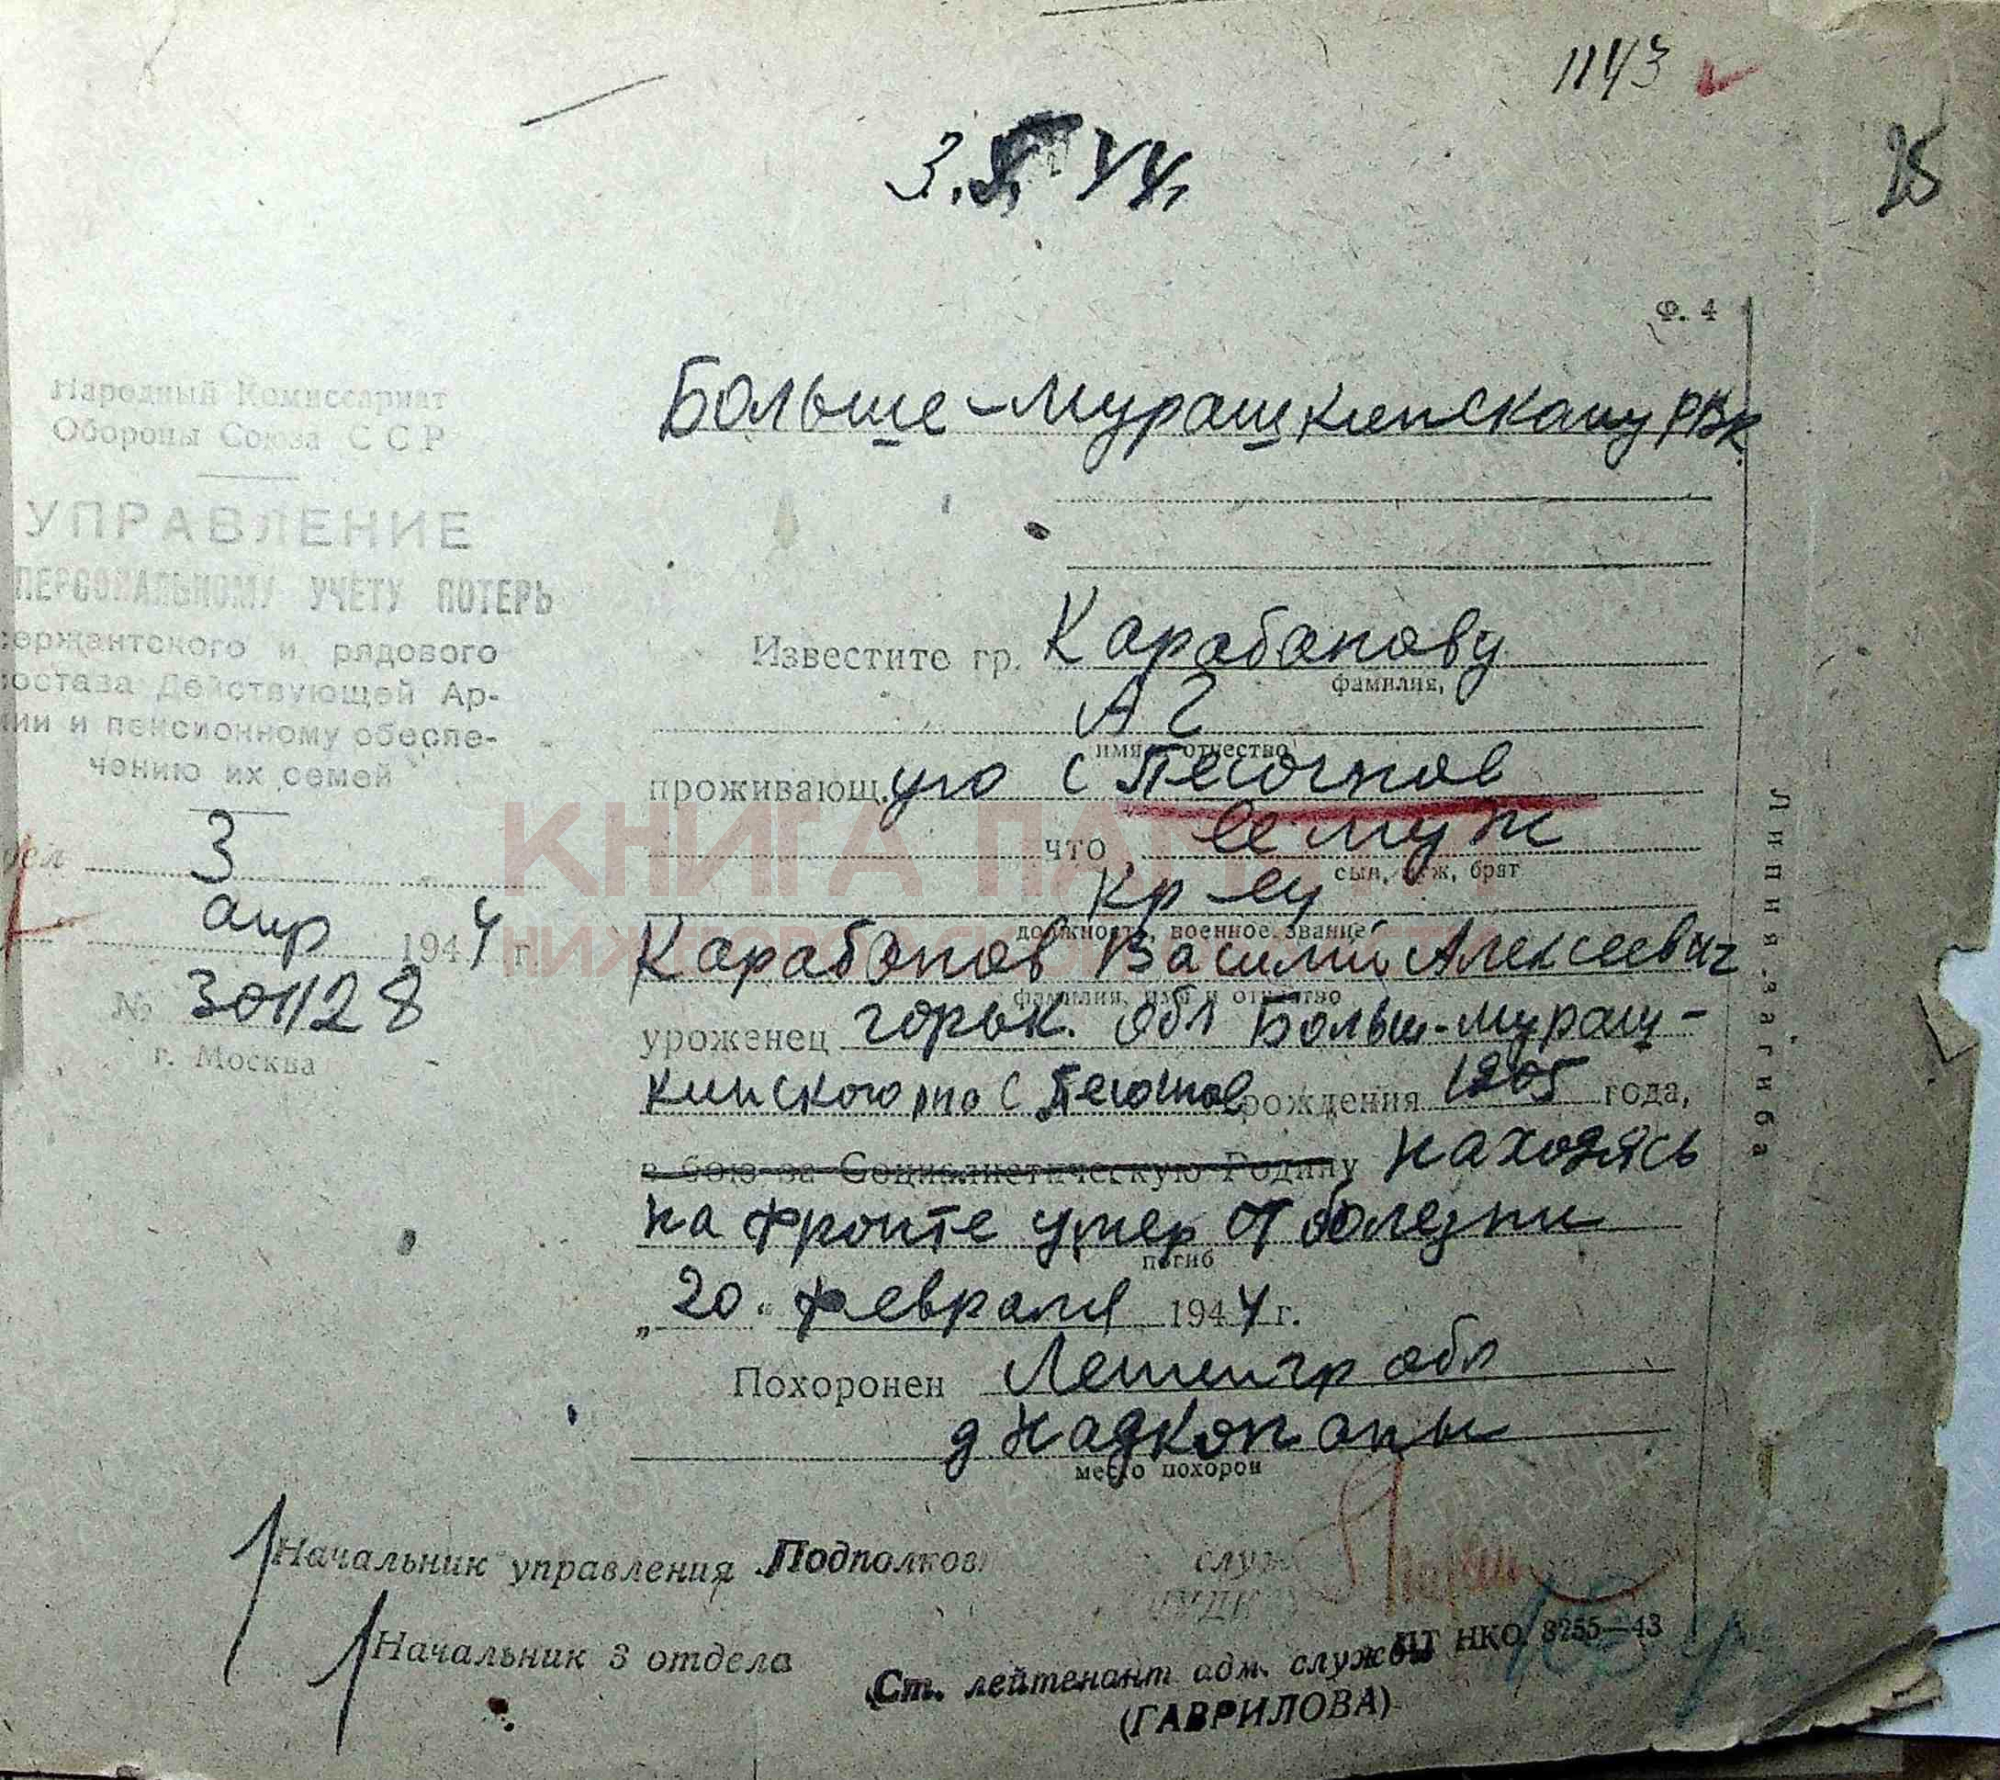 1143
3. 44.
25
Ф. 4
Народный Комиссариат
Обороны Союза ССР
УПРАВЛЕНИЕ
ПЕРСОНАЛЬНОМУ УЧЕТУ ПОТЕРЬ
сержантского и рядового
состава Действующей Ар-
мии и пенсионному обеспе-
чению их семей
3
апр 1944 г.
№ 301128
г. Москва
Больше-Мурашкинскому РВК.
Известите гр. Карабанову
фамилия,
А Г
имя и отчество
проживающ.ую с Песочнов
что, ее муж
сын, муж, брат
кр-ец
должность, военное звание
Карабанов Василий Алексеевич
фамилия, имя и отчество
уроженец Горьк. обл Больш-Мураш-
кинского рно с Песочнов рождения 1905 года,
в бою за Социалистическую Родину находясь
на фронте умер от болезни
погиб
„20“ февраля 1944 г.
Похоронен Ленингр обл
д Надкопаны
место похорон
Линия загиба
КНИГА ПАМЯТИ
НИЖЕГОРОДСКОЙ ОБЛАСТИ
Начальник управления Подполков служ
Начальник 3 отдела
ПТ НКО. 8255—43
Ст. лейтенант адм. службы
(ГАВРИЛОВА)